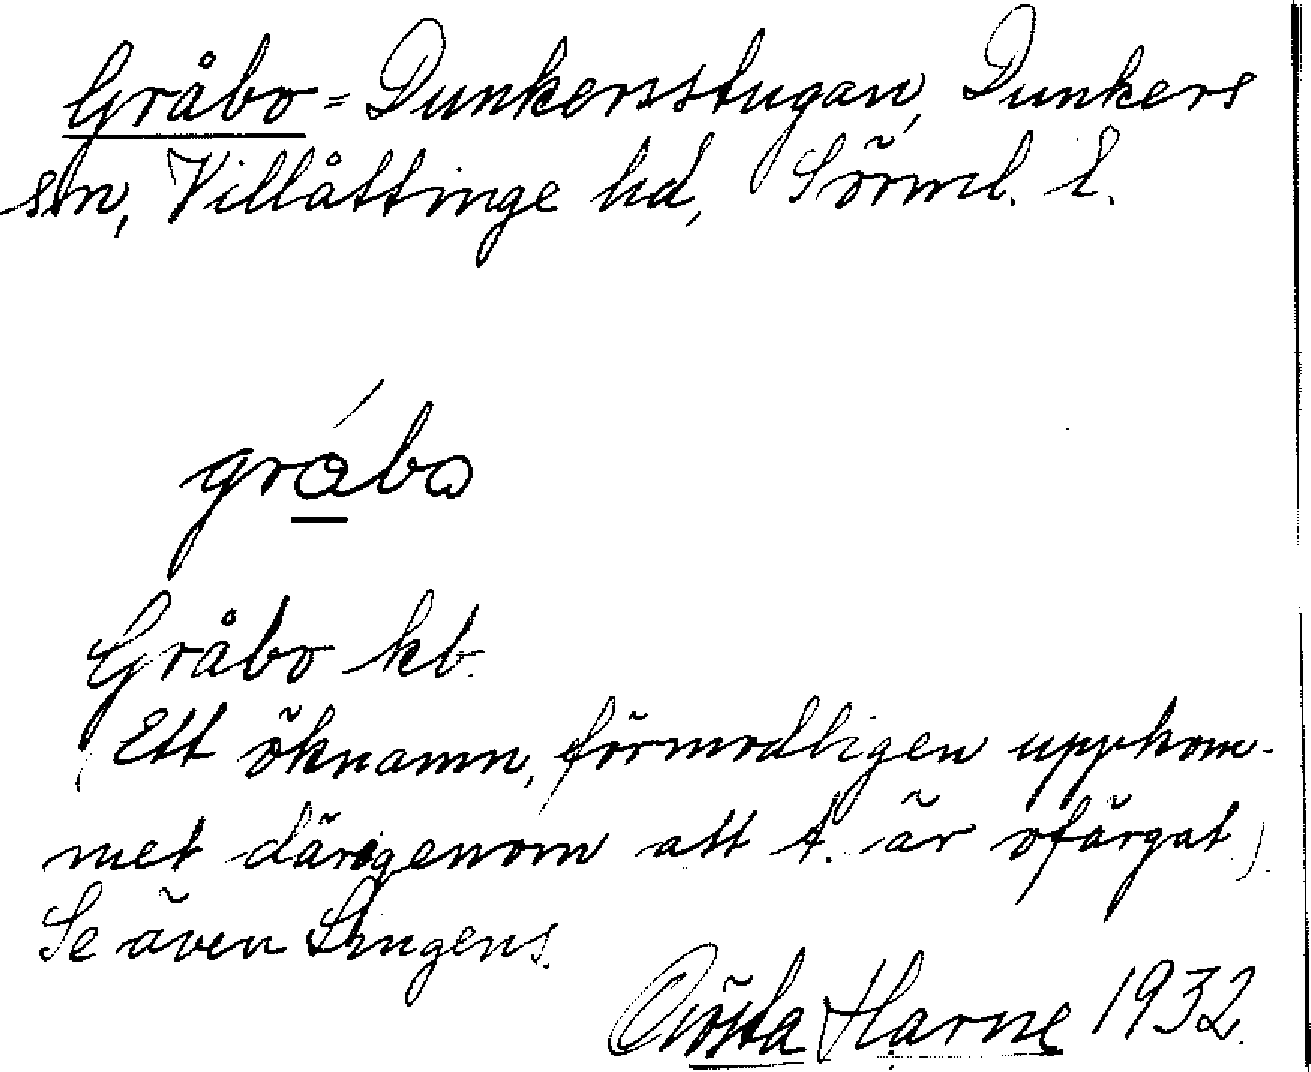 Gråbo = Dunkersstugan, Dunkers
sn, Villåttinge hd, Sörml. l.
gråbo
Gråbo kb.
(Ett öknamn, förmodligen uppkom-
met därigenom att t. är ofärgat.)
Se även
Gösta Harne 1932.